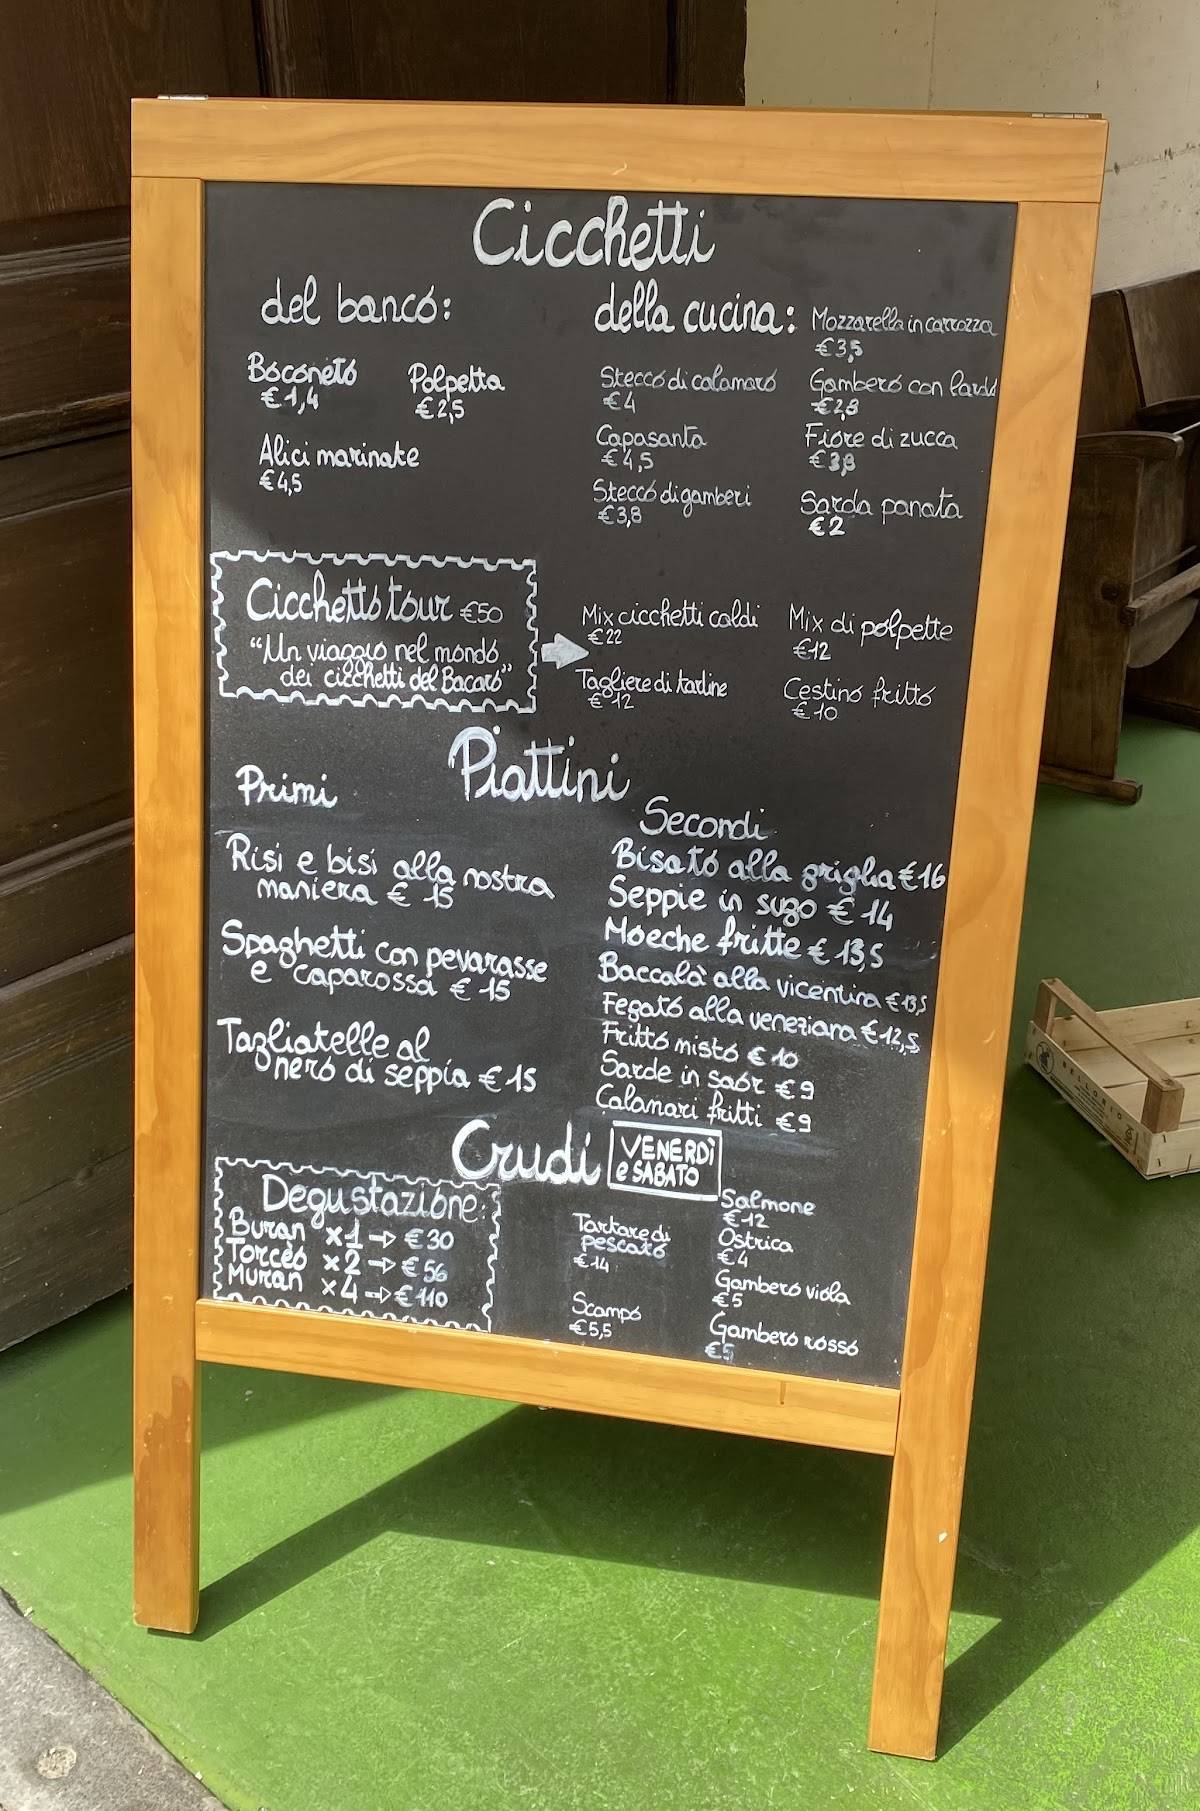 Cicchetti
del banco:
Boconeto
€ 1,4
Polpetta
€ 2,5
Alici marinate
€ 4,5
della cucina:
Mozzarella in carrozza
€ 3,5
Stecco di calamaro
€ 4
Gambero con lardo
€ 2,8
Capasanta
€ 4,5
Fiore di zucca
€ 3,8
Stecco di gamberi
€ 3,8
Sarda panata
€ 2
Cicchetto tour €50
"Un viaggio nel mondo
dei cicchetti del Bacaro"
Mix cicchetti caldi
€ 22
Mix di polpette
€ 12
Tagliere di tartine
€ 12
Cestino fritto
€ 10
Piattini
Primi
Risi e bisi alla nostra
maniera € 15
Spaghetti con pevarasse
e caparossa € 15
Tagliatelle al
nero di seppia € 15
Secondi
Bisato alla griglia € 16
Seppie in sugo € 14
Moeche fritte € 13,5
Baccalà alla vicentina € 13,5
Fegato alla veneziana € 12,5
Fritto misto € 10
Sarde in saor € 9
Calamari fritti € 9
Crudi
VENERDÌ
e SABATO
Degustazione:
Buran x1 → € 30
Torceo x2 → € 56
Muran x4 → € 110
Tartare di
pescato
€ 14
Scampo
€ 5,5
Salmone
€ 12
Ostrica
€ 4
Gambero viola
€ 5
Gambero rosso
€ 5
BELLORIO